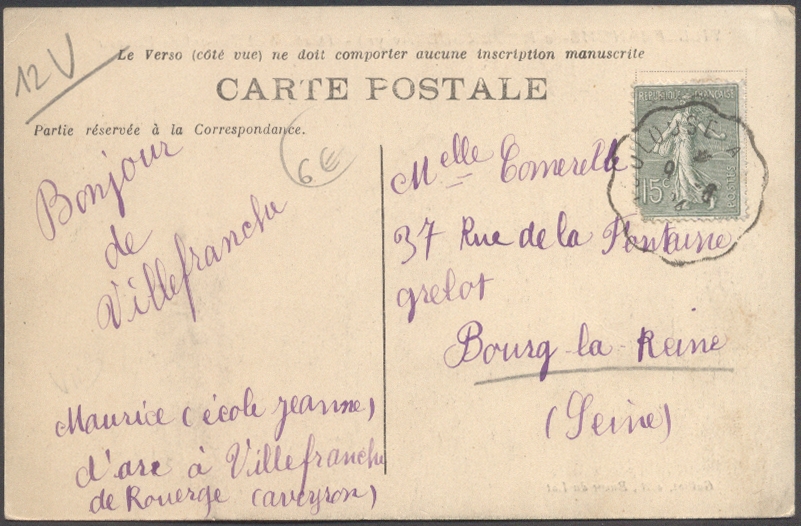 12V
Le Verso (côté vue) ne doit comporter aucune inscription manuscrite
CARTE POSTALE
Partie réservée à la Correspondance.
6€
Bonjour
de
Villefranche
Maurice (école jeanne)
d'arc à Villefranche
de Rouerge (aveyron)
REPUBLIQUE FRANÇAISE
15c
POSTES
TOULOUSE A
Melle Comerelle
37 Rue de la Fontaine
grelot
Bourg-la-Reine
(Seine)